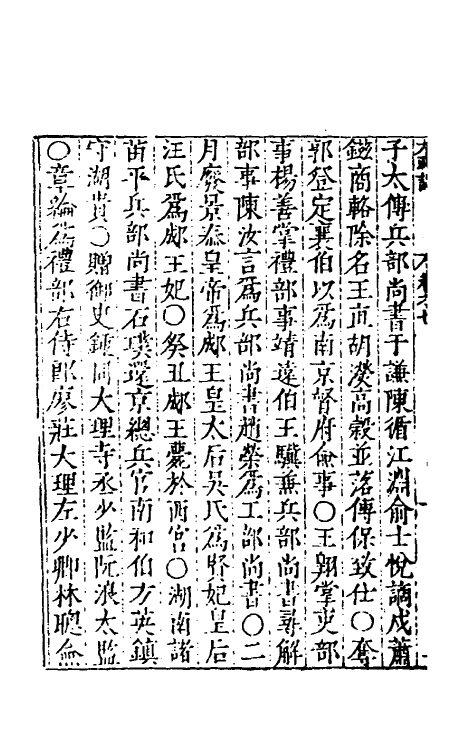 子太傅兵部尚書于謙陳循江淵俞士悅謫戍蕭
鎡商輅除名王直胡濙高穀並落傅保致仕〇奪
郭登定襄伯以爲南京督府僉事〇王翱掌吏部
事楊善掌禮部事靖遠伯王驥兼兵部尚書尋解
部事陳汝言爲兵部尚書趙榮爲工部尚書〇二
月廢景泰皇帝爲郕王皇太后吳氏爲賢妃皇后
汪氏爲郕王妃〇癸丑郕王薨於西宮〇湖南諸
苗平兵部尚書石璞還京總兵官南和伯方英鎮
守湖貴〇贈御史鍾同大理寺丞少監阮浪太監
〇章綸爲禮部右侍郎廖莊大理左少卿林聰僉